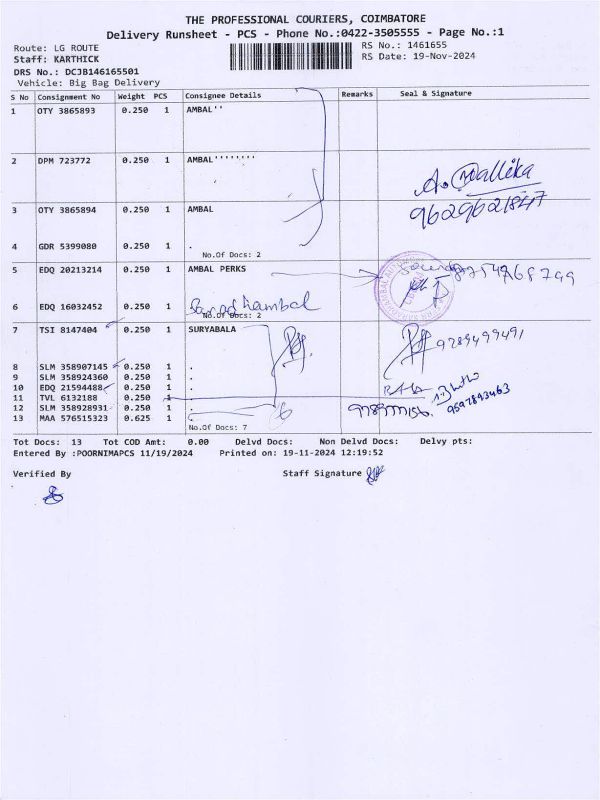 THE PROFESSIONAL COURIERS, COIMBATORE
Delivery Runsheet - PCS - Phone No.:0422-3505555 - Page No.:1
Route: LG ROUTE RS No.: 1461655
Staff: KARTHICK RS Date: 19-Nov-2024
DRS No.: DCJB146165501
Vehicle: Big Bag Delivery
S No Consignment No Weight PCS Consignee Details Remarks Seal & Signature
1 OTY 3865893 0.250 1 AMBAL''
2 DPM 723772 0.250 1 AMBAL''''''''
A. Mallika
9629621847
3 OTY 3865894 0.250 1 AMBAL
4 GDR 5399080 0.250 1 .
No.Of Docs: 2
5 EDQ 20213214 0.250 1 AMBAL PERKS
6 EDQ 16032452 0.250 1
No.Of Docs: 2
7 TSI 8147404 0.250 1 SURYABALA
9789499491
8 SLM 358907145 0.250 1 .
9 SLM 358924360 0.250 1 .
10 EDQ 21594488 0.250 1 .
11 TVL 6132188 0.250 1 .
12 SLM 358928931 0.250 1 .
9597893463
13 MAA 576515323 0.625 1 .
No.Of Docs: 7
Tot Docs: 13 Tot COD Amt: 0.00 Delvd Docs: Non Delvd Docs: Delvy pts:
Entered By :POORNIMAPCS 11/19/2024 Printed on: 19-11-2024 12:19:52
Verified By Staff Signature